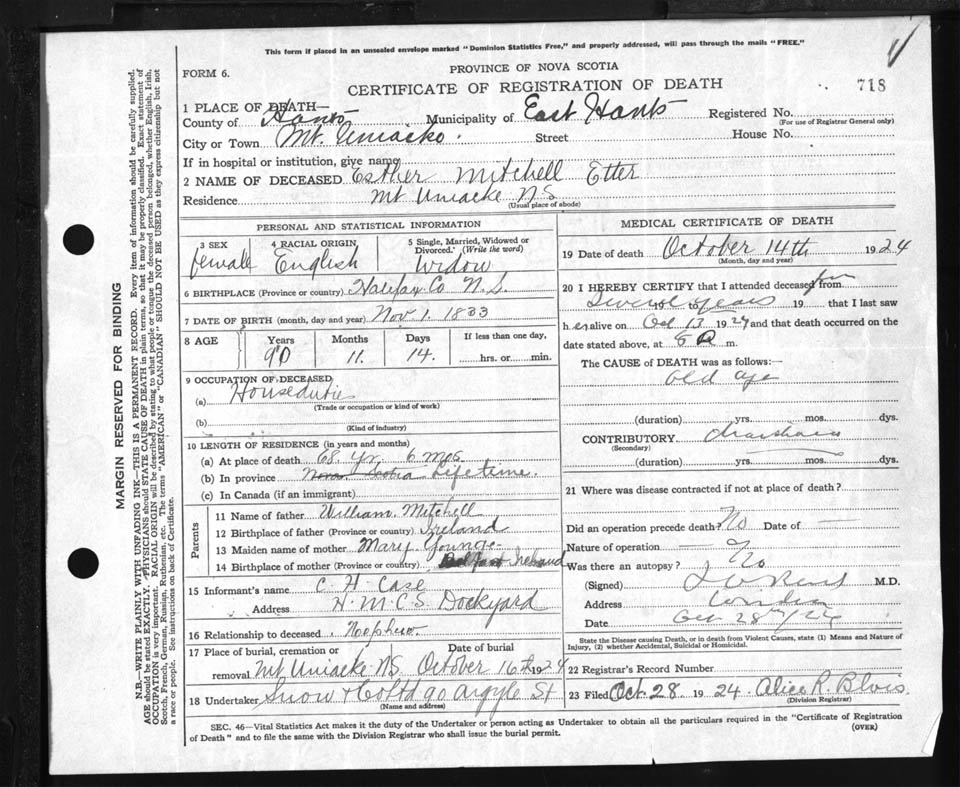 This form if placed in an unsealed envelope marked "Dominion Statistics Free," and properly addressed, will pass through the mails "FREE."
FORM 6.
PROVINCE OF NOVA SCOTIA
CERTIFICATE OF REGISTRATION OF DEATH
718
1 PLACE OF DEATH—
County of Hants Municipality of East Hants Registered No.
(For use of Registrar General only)
City or Town Mt. Uniacke. Street House No.
If in hospital or institution, give name
2 NAME OF DECEASED Esther Mitchell Etter
Residence Mt Uniacke N.S
(Usual place of abode)
PERSONAL AND STATISTICAL INFORMATION
3 SEX female
4 RACIAL ORIGIN English
5 Single, Married, Widowed or Divorced. (Write the word) Widow
6 BIRTHPLACE (Province or country) Halifax Co N.S.
7 DATE OF BIRTH (month, day and year) Nov 1. 1833
8 AGE Years Months Days If less than one day,
90 11. 14. hrs. or min.
9 OCCUPATION OF DECEASED
(a) Houseduties
(Trade or occupation or kind of work)
(b)
(Kind of industry)
10 LENGTH OF RESIDENCE (in years and months)
(a) At place of death 68. yr. 6 mos.
(b) In province Nova Scotia Lifetime.
(c) In Canada (if an immigrant)
Parents
11 Name of father William. Mitchell
12 Birthplace of father (Province or country) Ireland
13 Maiden name of mother Mary. Younge
14 Birthplace of mother (Province or country) Belfast Ireland
15 Informant's name C H Case
Address H.M.C.S Dockyard
16 Relationship to deceased Nephew.
17 Place of burial, cremation or removal Mt Uniacke N.S. Date of burial October 16th 1924
18 Undertaker Snow & Co Ltd 90 Argyle St
(Name and address)
MEDICAL CERTIFICATE OF DEATH
19 Date of death October 14th 1924
(Month, day and year)
20 I HEREBY CERTIFY that I attended deceased from for
Several years 19 that I last saw
h er alive on Oct 13 1924 and that death occurred on the
date stated above, at m.
The CAUSE of DEATH was as follows:—
Old Age
(duration) yrs. mos. dys.
CONTRIBUTORY
(Secondary)
(duration) yrs. mos. dys.
21 Where was disease contracted if not at place of death?
Did an operation precede death? No Date of —
Nature of operation —
Was there an autopsy? No
(Signed) M.D.
Address
Date Oct 28
State the Disease causing Death, or in death from Violent Causes, state (1) Means and Nature of Injury, (2) whether Accidental, Suicidal or Homicidal.
22 Registrar's Record Number
23 Filed Oct. 28. 1924. Alice R. Blois
(Division Registrar)
SEC. 46—Vital Statistics Act makes it the duty of the Undertaker or person acting as Undertaker to obtain all the particulars required in the "Certificate of Registration
of Death" and to file the same with the Division Registrar who shall issue the burial permit.
(OVER)
MARGIN RESERVED FOR BINDING
N.B.—WRITE PLAINLY WITH UNFADING INK—THIS IS A PERMANENT RECORD. Every item of information should be carefully supplied.
AGE should be stated EXACTLY. PHYSICIANS should STATE CAUSE OF DEATH in plain terms, so that it may be properly classified. Exact statement of
OCCUPATION is very important. RACIAL ORIGIN will be described by stating to what people or tongue the deceased person belonged, whether English, Irish,
Scotch, French, German, Russian, Ruthenian, etc. The terms "AMERICAN" or "CANADIAN" SHOULD NOT BE USED as they express citizenship but not
a race or people. See instructions on back of Certificate.